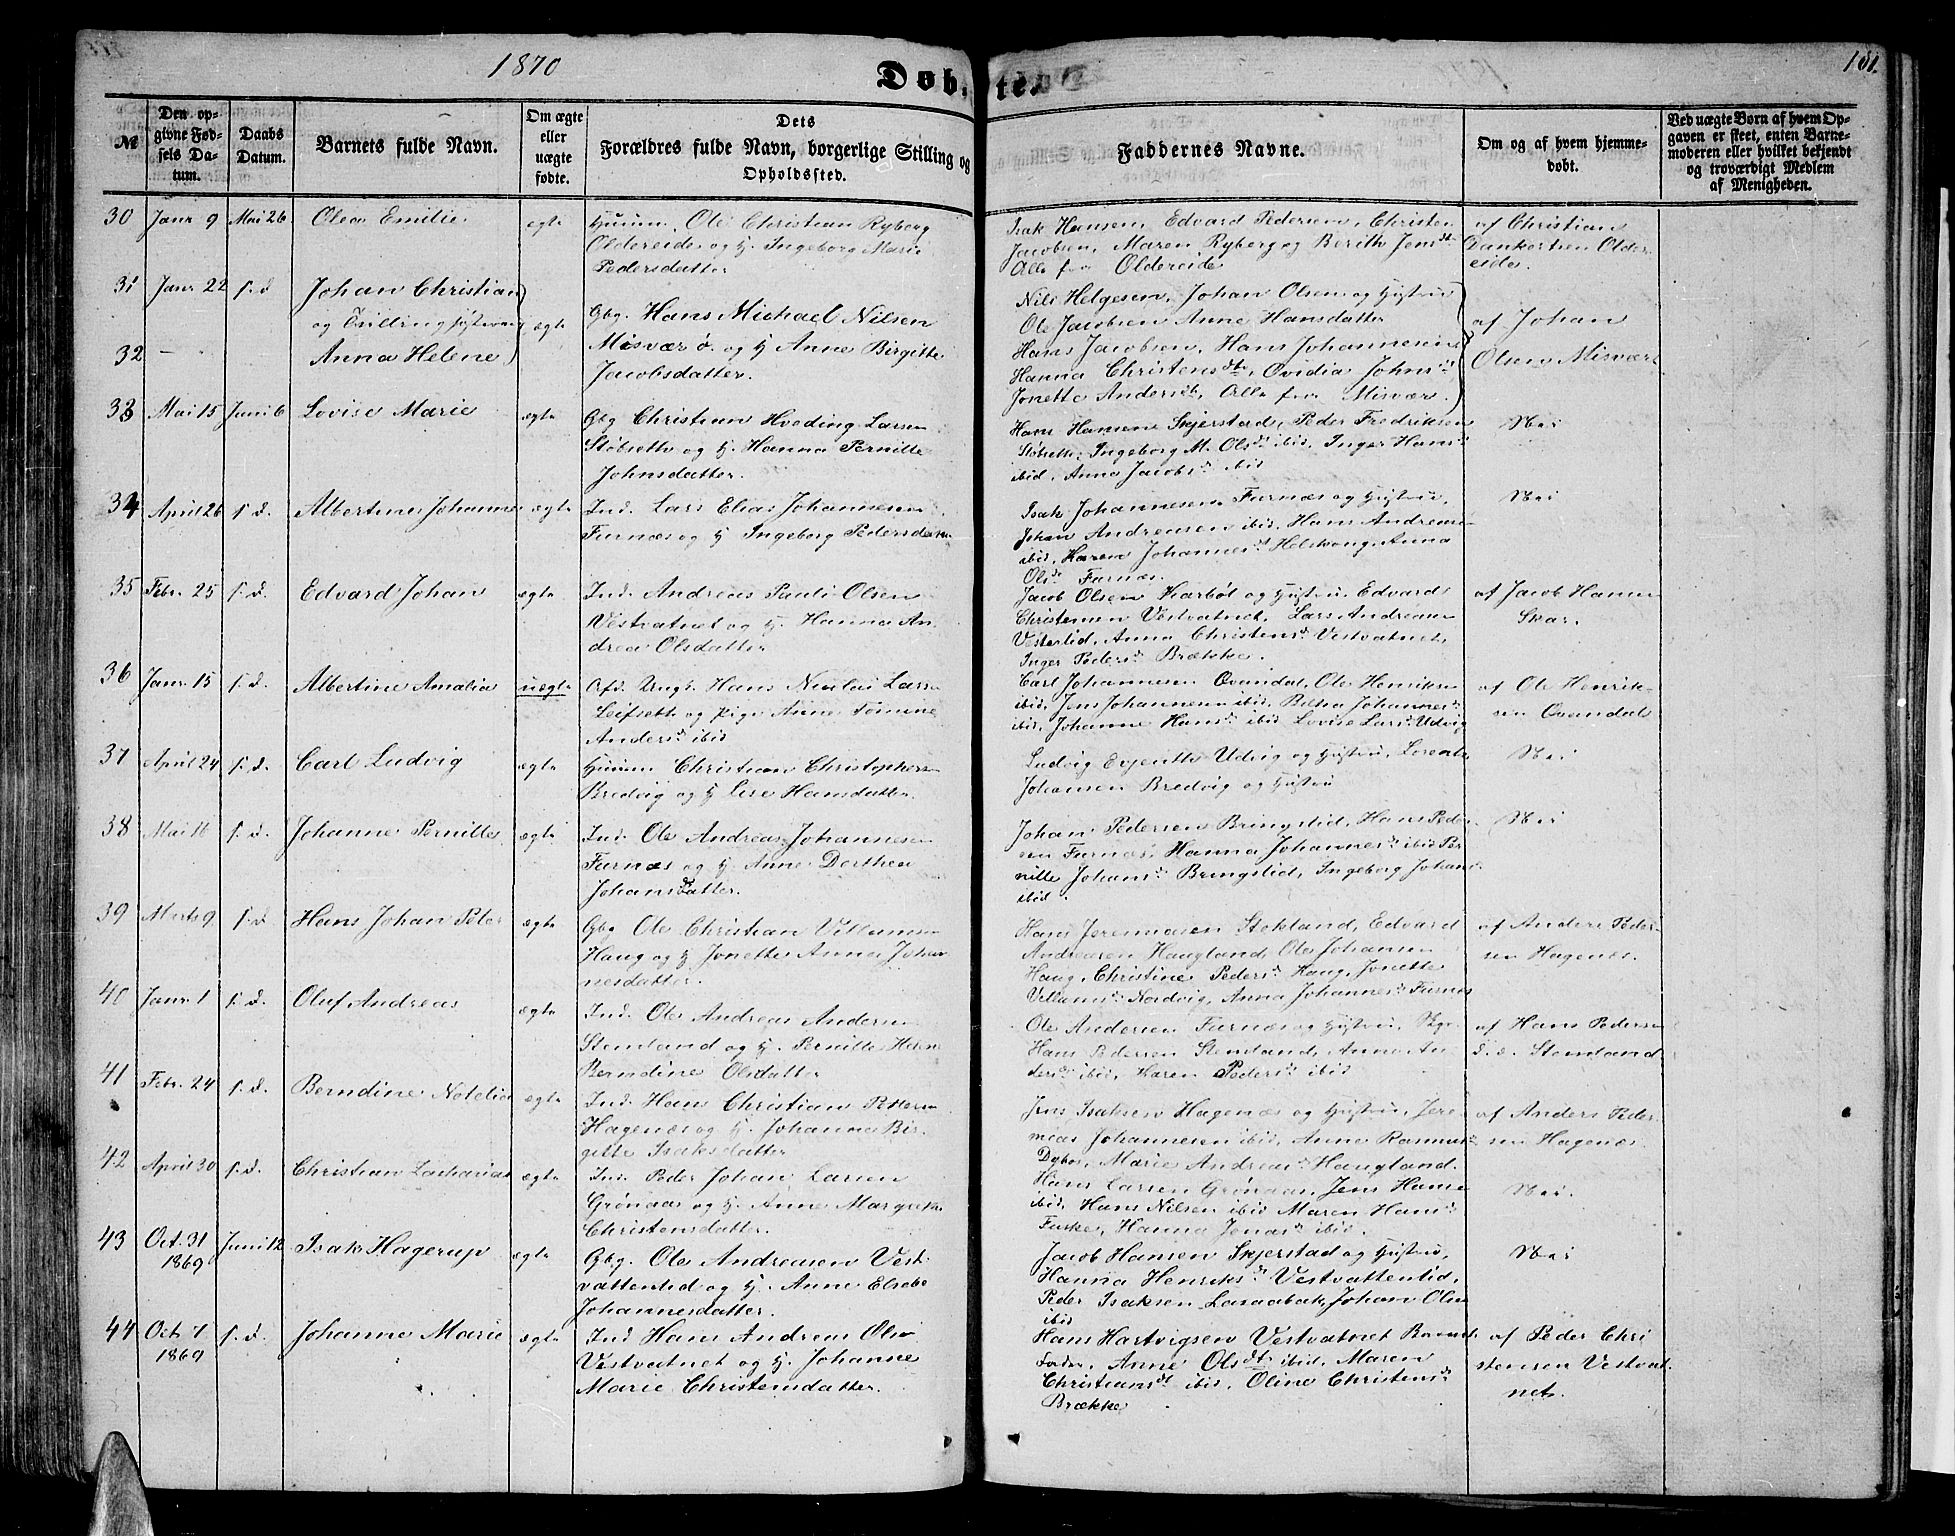 1870
Døbte.
181.
№
Den opgivne Fødsels Datum.
Daabs Datum.
Barnets fulde Navn.
Om ægte eller uægte fødte.
Dets Forældres fulde Navn, borgerlige Stilling og Opholdssted.
Faddernes Navne.
Om og af hvem hjemmedøbt.
Ved uægte Børn af hvem Opgaven er skeet, enten Barnemoderen eller hvilket bekjendt og troværdigt Medlem af Menigheden.
30 Janr 9 Mai 26 Olea Emilie ægte
Huusm. Ole Christian Ryberg
Oldereide og h. Ingeborg Marie
Pedersdatter
Isak Hansen, Edvard Pedersen, Christen
Jacobsen, Maren Ryberg og Berith Jensdt
Alle fra Oldereide
af Christian
Dankertsen Older-
eide.
31 Janr 22 s.d. Johan Christian
og Tvilling
32 — Anna Helene ægte
Gbg. Hans Michael Nilsen
Misvær ø. og h Anne Birgitte
Jacobsdatter.
Nils Helgesen, Johan Olsen og Hustru
Ole Jacobsen Anne Hansdatter
Hans Jacobsen, Hans Johannesen
Hanna Christensdt, Ovidia Johnsd
Jonette Andersdt, Alle fra Misvær.
af Johan
Olsen Misvær
33 Mai 15 Juni 6 Lovise Marie ægte
Gbg Christian Hveding Larsen
Støbseth og h. Hanna Pernille
Johnsdatter.
Hans Hansen Skjerstad, Peder Fredriksen
Støbseth, Ingeborg M. Olsd ibid, Inger Hansd
ibid, Anna Jacobsd ibid
Nei
34 April 26 s.d. Albertine Johanne ægte
Ind. Lars Elias Johannesen
Furnæs og h Ingeborg
Isak Johannesen Furnæs og Hustru,
Johan Andreasen ibid, Hans Andreas-
ibid, Karen Johannesd Anna
Olsd Furnæs.
Nei
35 Febr. 25 s.d. Edvard Johan ægte
Ind. Andreas Pauli Olsen
Vestvatnet og h. Hanna An
drea Olsdatter
Jacob Olsen Karbøl og Hustru, Edvard
Christensen Vestvatnet, Lars Andreasen
Vesterlid, Anna Christensd Vestvatnet,
Inger Pedersd Brække.
af Jacob Hansen
Skar.
36 Janr. 15 s.d. Albertine Amalia uægte
Ungk. Hans Nicolai Larsen
Leifseth og Pige Anne
Andersd ibid
Carl Johannesen Ovandal, Ole Henriksen
ibid, Jens Johannesen ibid, Johannesd
ibid, Johanne Hansd ibid Lovise Larsd Udvig
af Ole Henrik-
sen Ovandal
37 April 24 s.d. Carl Ludvig ægte
Huusm Christian Christophersen
Bredvig og h Hansdatter.
Ludvig Evjenth Udvig og Hustru,
Johansen Bredvig og Hustru
Nei
38 Mai 16 s.d. Johanne Pernille ægte
Ind. Ole Andreas Johannesen
Furnæs og h. Anne Dorthea
Johansdatter.
Johan Pedersen Bringslid, Hans Peder-
sen Furnæs, Hanna Johannesd ibid Per-
nille Johansd Bringslid, Ingeborg Johansd
ibid.
Nei
39 Marts 9 s.d. Hans Johan Peter ægte
Gbg Ole Christian Villumsen
Haug og h Jonette Anna Johan
nesdatter.
Hans Jeremiasen Stokland, Edvard
Andreasen Haugland Ole Johansen
Haug, Christine Pedersd Haug, Jonette
Villumsd Nordvig, Anna Johannesd Furnes
af Anders Peder-
sen Hagenæs.
40 Janr. 1 s.d. Oluf Andreas ægte
Ind. Ole Andreas Andersen
Stemland og h. Pernille
Berndine Olsdatter
Ole Andersen Furnæs og Hustru,
Hans Pedersen Stemland, Anne An
dersd ibid, Karen Pedersd ibid
af Hans Pedersen
Stemland
41 Febr. 24 s.d. Berndine Notelia ægte
Ind. Hans Christian Pettersen
Hagenæs og h. Johanna Bir-
gitte Isaksdatter
Jens Isaksen Hagenæs og Hustru, Jere-
mias Johannesen ibid, Anna Rasmus
Marie Andreasd Haugland.
af Anders Peder-
sen Hagenæs
42 April 30 s.d. Christian Zacharias ægte
Ind. Peder Johan Larsen
Grønaas og h. Anne Margrethe
Christensdatter.
Hans Larsen Grønaas, Jens Hansen
ibid, Hans Nilsen ibid Maren Hansd
Fuske, Hanna Jonasd ibid.
Nei.
43 Oct. 31
1869 Juni 12 Isak Hagerup ægte
Gbg. Ole Andreasen Vest-
vattenlid og h. Anne Elsebe
Johannesdatter.
Jacob Hansen Skjerstad og Hustru,
Hanna Henriksd Vestvattenlid,
Peder Isaksen Johan Olsen
ibid
Nei
44 Oct. 7
1869 s.d. Johanne Marie ægte
Ind Hans Andreas Olsen
Vestvatnet og h. Johanne
Marie Christensdatter.
Hans Hartvigsen Vestvatnet
Anne Olsdt ibid, Maren
Christiansdt ibid, Oline Christensd
Brække
af Peder Chri
stensen Vestvat-
net.